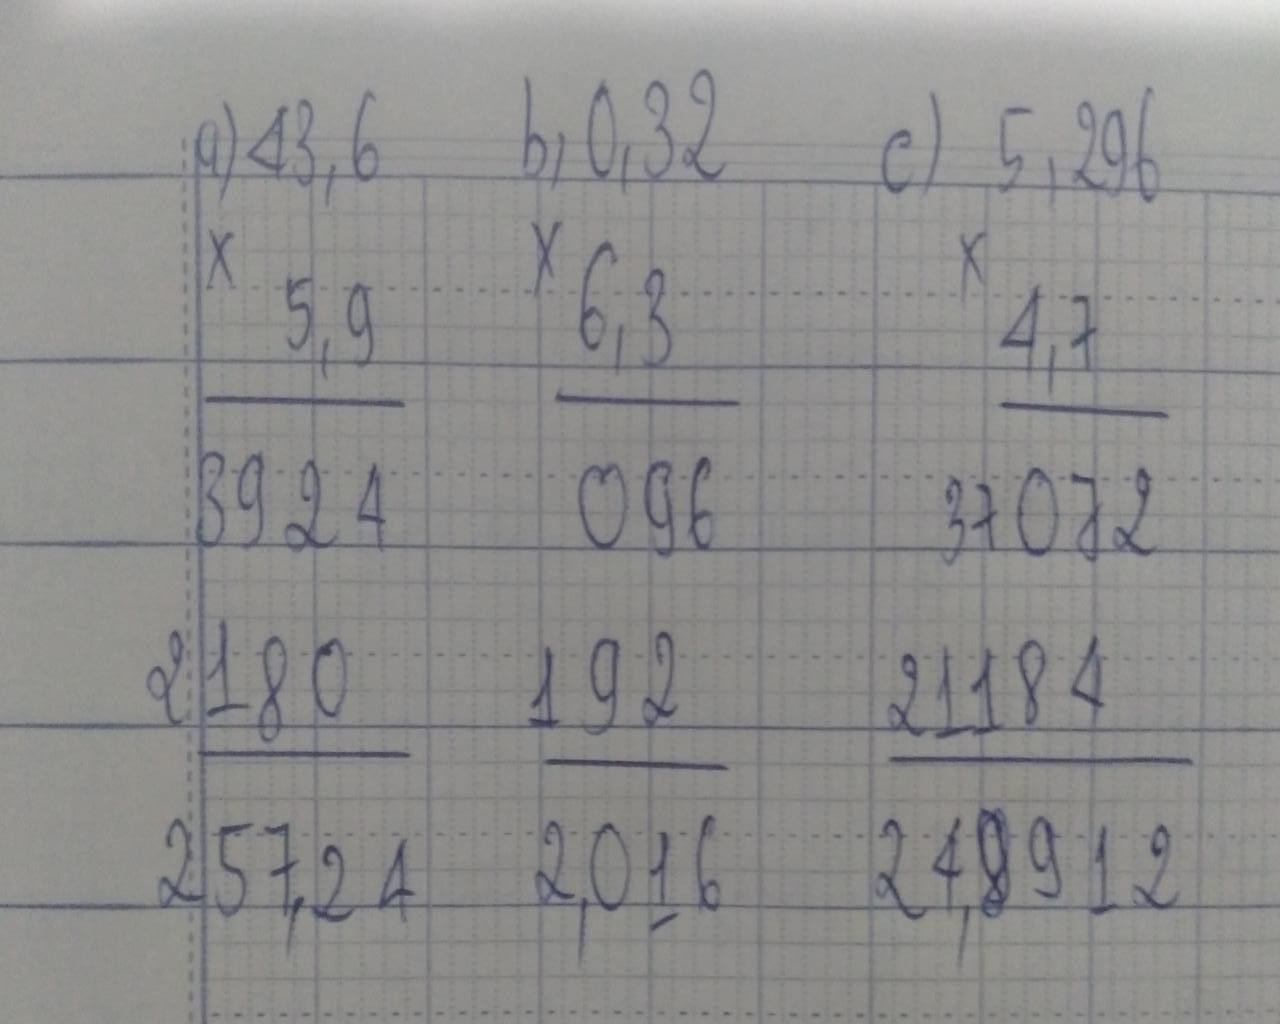 a) 43,6 b, 0,32 c) 5,296
x 5,9 x 6,3 x 4,7
3924 096 37072
2180 192 21184
257,24 2,016 24,8912